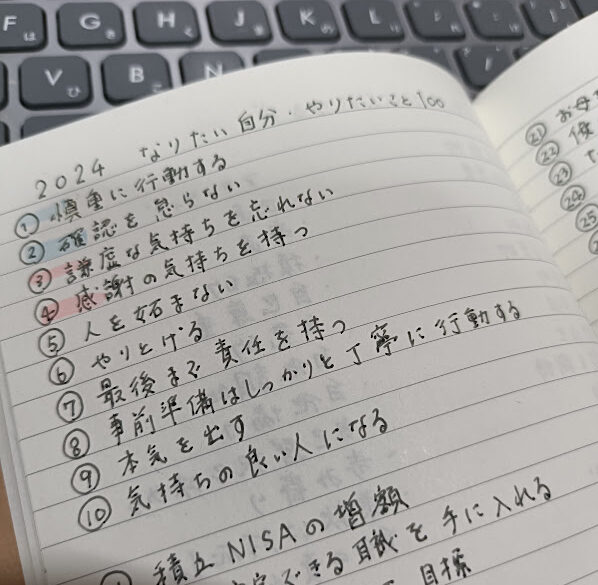 F は
G き
H く
J ま
K の
L り
V ひ
B こ
N
2024 なりたい自分・やりたいこと100
① 慎重に行動する
② 確認を怠らない
③ 謙虚な気持ちを忘れない
④ 感謝の気持ちを持つ
⑤ 人を妬まない
⑥ やりとげる
⑦ 最後まで責任を持つ
⑧ 事前準備はしっかりと丁寧に行動する
⑨ 本気を出す
⑩ 気持ちの良い人になる
積立NISAの増額
できる職を手に入れる
目標
㉑ お母
㉒
㉓
㉔
㉕